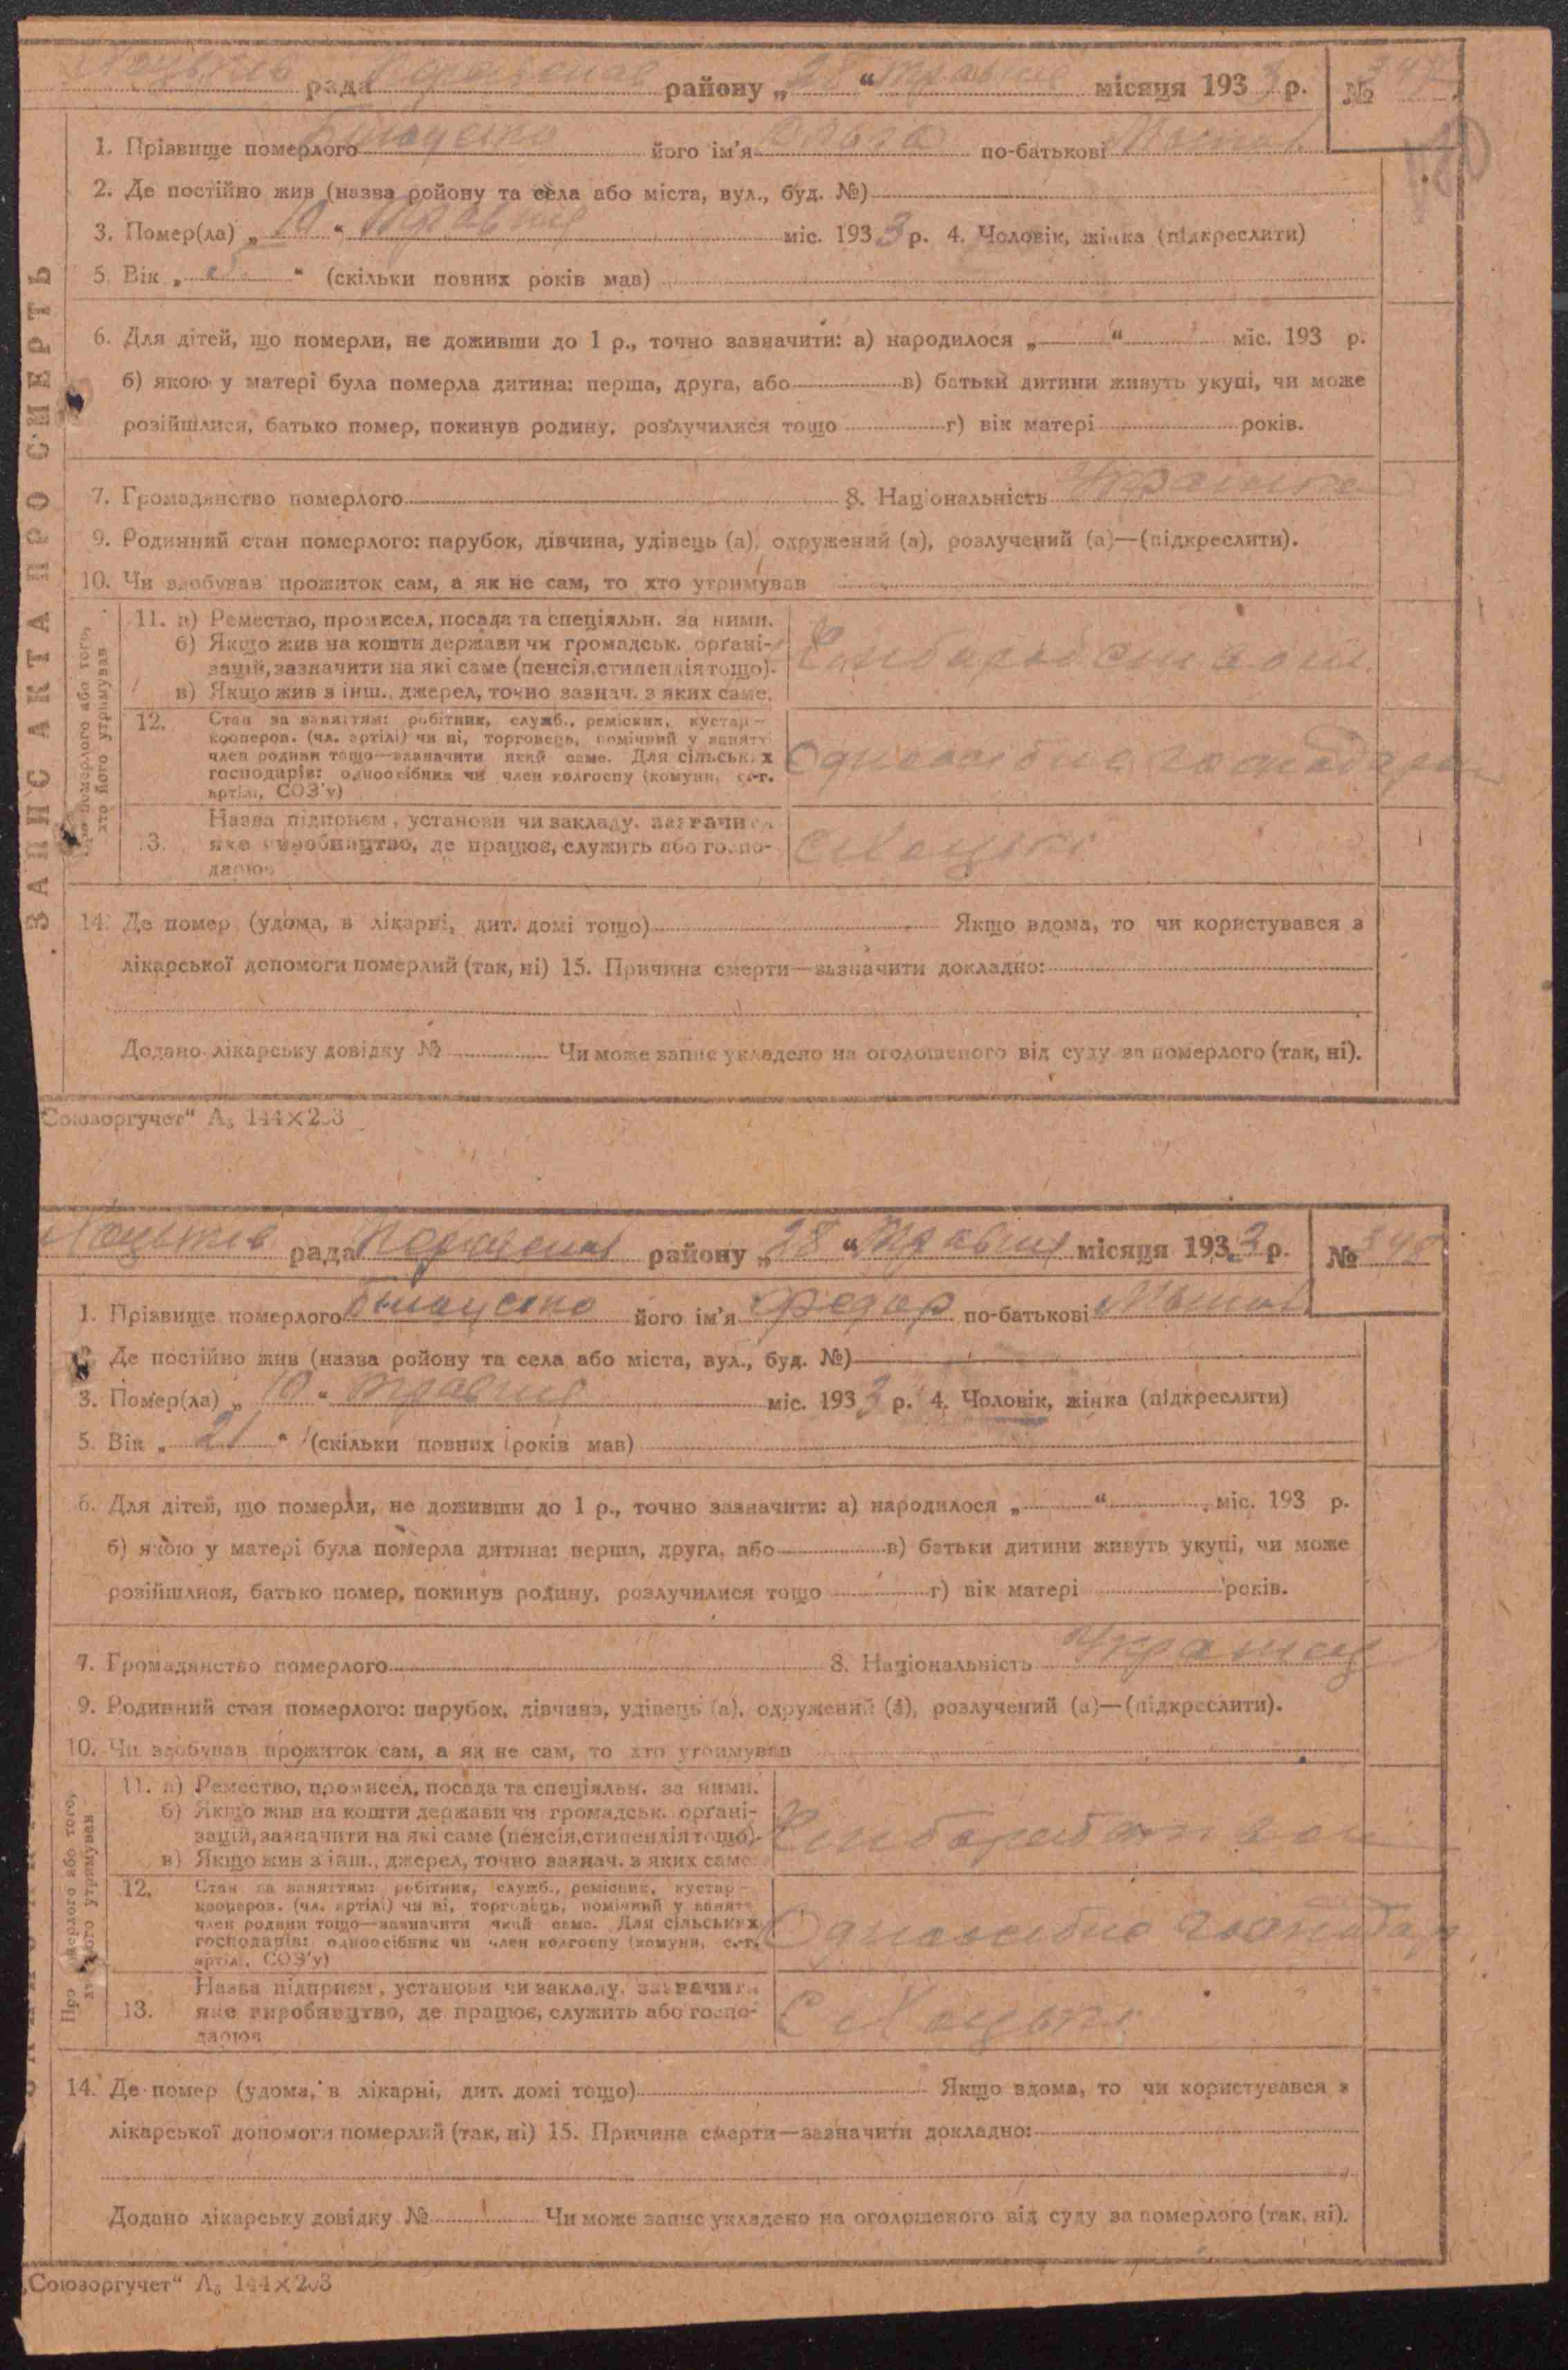 рада району „28“ травня місяця 1933 р. № 347
1. Прізвище померлого його ім'я Ольга по-батькові
2. Де постійно жив (назва ройону та села або міста, вул., буд. №)
3. Помер(ла) „10“ травня міс. 1933 р. 4. Чоловік, жінка (підкреслити)
5. Вік „ “ (скільки повних років мав)
6. Для дітей, що померли, не доживши до 1 р., точно зазначити: а) народилося „ “ міс. 193 р.
б) якою у матері була померла дитина: перша, друга, або в) батьки дитини живуть укупі, чи може
розійшлися, батько помер, покинув родину, розлучилися тощо г) вік матері років.
7. Громадянство померлого 8. Національність Українка
9. Родинний стан померлого: парубок, дівчина, удівець (а), одружений (а), розлучений (а)—(підкреслити).
10. Чи здобував прожиток сам, а як не сам, то хто утримував
ЗАПИС АКТА ПРО СМЕРТЬ
Про померлого або того,
хто його утримував
11. а) Ремество, промисел, посада та спеціяльн. за ними.
б) Якщо жив на кошти держави чи громадськ. орґані-
зацій, зазначити на які саме (пенсія, стипендія тощо).
в) Якщо жив з інш., джерел, точно зазнач. з яких саме.
12. Стан за заняттям: робітник, служб., реміскик, кустар-
кооперов. (чл. артілі) чи ні, торговець, помічний у занятт
член родини тощо—зазначити який саме. Для сільських
господарів: одноосібник чи член колгоспу (комуни, с.-г.
артілі, СОЗ'у)
Одноосібне господарство
13. Назва підприєм., установи чи закладу, зазначити
яке виробництво, де працює, служить або госпо-
дарює
14. Де помер (удома, в лікарні, дит. домі тощо) Якщо вдома, то чи користувався з
лікарської допомоги померлий (так, ні) 15. Причина смерти—зазначити докладно:
Додано лікарську довідку № Чи може запис укладено на оголошеного від суду за померлого (так, ні).
„Союзоргучет“ А₅ 144×203
рада району „28“ травня місяця 1933 р. № 348
1. Прізвище померлого його ім'я Федор по-батькові
Де постійно жив (назва ройону та села або міста, вул., буд. №)
3. Помер(ла) „10“ травня міс. 1933 р. 4. Чоловік, жінка (підкреслити)
5. Вік „21“ (скільки повних років мав)
6. Для дітей, що померли, не доживши до 1 р., точно зазначити: а) народилося „ “ міс. 193 р.
б) якою у матері була померла дитина: перша, друга, або в) батьки дитини живуть укупі, чи може
розійшлися, батько помер, покинув родину, розлучилися тощо г) вік матері років.
7. Громадянство померлого 8. Національність Українец
9. Родинний стан померлого: парубок, дівчина, удівець (а), одружений (а), розлучений (а)—(підкреслити).
10. Чи здобував прожиток сам, а як не сам, то хто утримував
Про померлого або того,
хто його утримував
11. а) Ремество, промисел, посада та спеціяльн. за ними.
б) Якщо жив на кошти держави чи громадськ. орґані-
зацій, зазначити на які саме (пенсія, стипендія тощо).
в) Якщо жив з інш., джерел, точно зазнач. з яких саме
12. Стан за заняттям: робітник, служб., ремісник, кустар-
кооперов. (чл. артілі) чи ні, торговець, помічний у занятт
член родини тощо—зазначити який саме. Для сільських
господарів: одноосібник чи член колгоспу (комуни, с.-г.
артілі, СОЗ'у)
Одноосібне господар
13. Назва підприєм., установи чи закладу, зазначити
яке виробництво, де працює, служить або госпо-
дарює
14. Де помер (удома, в лікарні, дит. домі тощо) Якщо вдома, то чи користувався з
лікарської допомоги померлий (так, ні) 15. Причина смерти—зазначити докладно:
Додано лікарську довідку № Чи може запис укладено на оголошеного від суду за померлого (так, ні).
„Союзоргучет“ А₅ 144×203